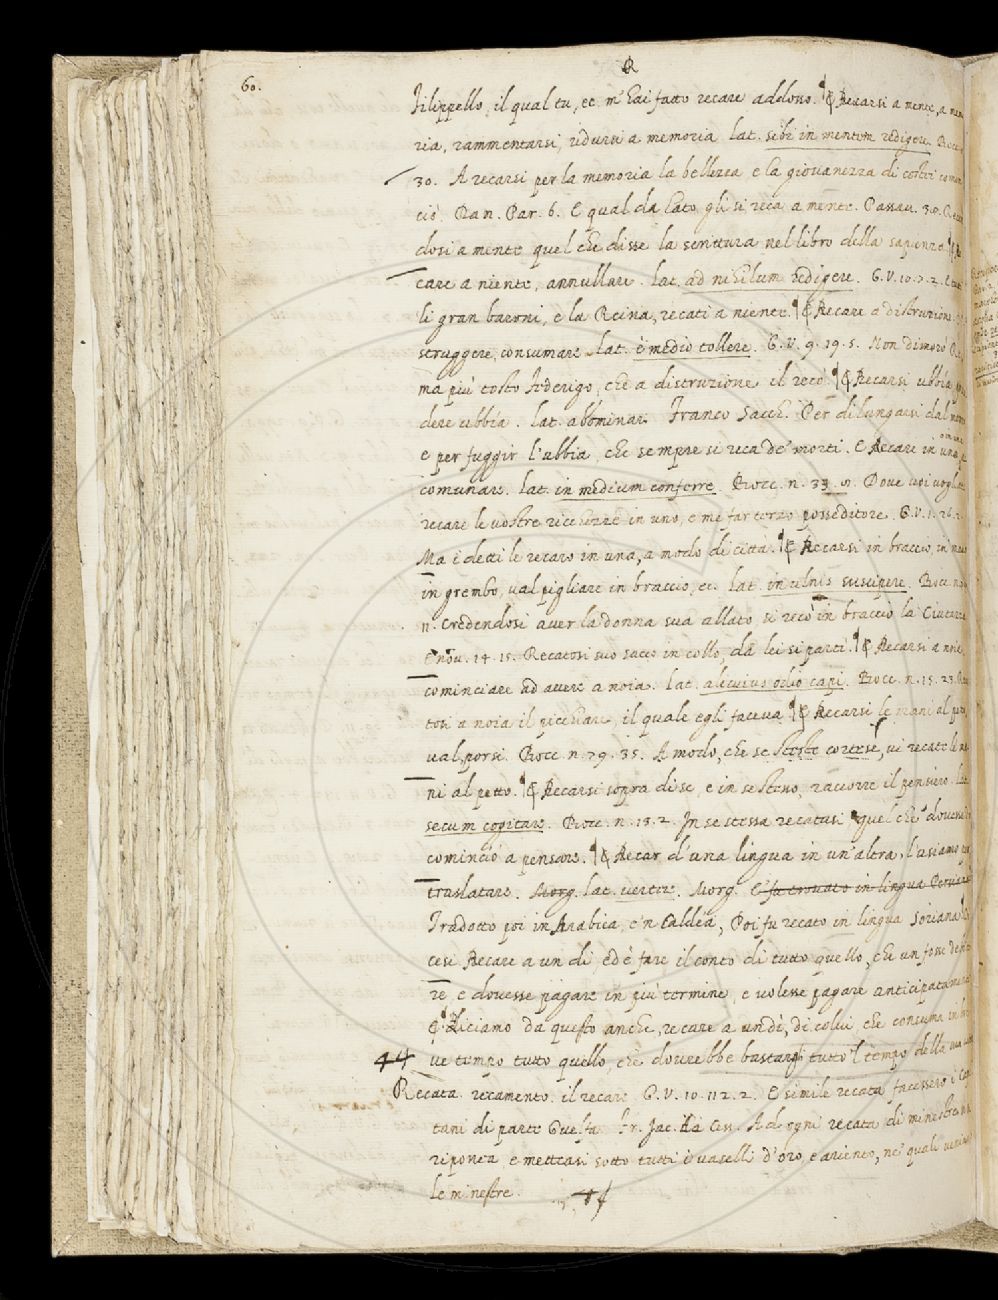 60.
R
Filippello, il qual tu, ec. m'hai fatto recare addosso. ¶ Recarsi a mente, a mem
ria, rammentarsi, ridursi a memoria lat. sibi in mentem redigere. Bocc.
30. A recarsi per la memoria la bellezza e la giovanezza di costei comin
ciò. Dan. Par. 6. E qual da lato gli si reca a mente. Passav. 30.
dosi a mente quel che disse la scrittura nel libro della sapienza. ¶ Re
care a niente, annullare. lat. ad nihilum redigere. G.V. 10.7.2. E
li gran baroni, e la Reina, recati a niente. ¶ Recare a distruzione,
struggere, consumare. lat. è medio tollere. G.V. 9.19.5. Non dimorò
ma più tosto Arderigo, che a distruzione il recò. ¶ Recarsi ubbia,
dere ubbia. lat. abbominari Franco Sacch. Per dilungarsi dal
e per fuggir l'ubbia, che sempre si reca de' morti. E Recare in uno
comunare. lat. in medium conferre. Bocc. n. 33. Dove voi vogliate
recare le vostre ricchezze in uno, e me far terzo posseditore. G.V. 1.
Ma i detti le recaro in una, a modo di città. ¶ Recarsi in braccio, in
in grembo, val pigliare in braccio, ec. lat. in ulnis suscipere. Bocc.
n. Credendosi aver la donna sua allato, si recò in braccio la Ciutazza
E nov. 14. 15. Recatosi suo sacco in collo, da lei si partì. ¶ Recarsi a noia
cominciare ad avere a noia. lat. alicuius odio capi. Bocc. n. 15. 23.
tosi a noia il picchiare, il quale egli faceva ¶ Recarsi le mani al petto
val, porsi. Bocc. n. 79. 35. A modo, che se steste cortese, vi recate le ma
ni al petto. ¶ Recarsi sopra di se, e in se stesso, raccorre il pensiero. lat.
secum cogitare. Bocc. n. 13. 2. In se stessa recatasi quel che
cominciò a pensare. ¶ Recar d'una lingua in un'altra, l'usiamo per
traslatare. Morg. lat. vertere. Morg. E fu trovato in lingua
Tradotto poi in Arabica, e'n Caldea, Poi fu recato in lingua Soriana
cesi Recare a un dì, ed è fare il conto di tutto quello, che un fosse
re, e dovesse pagare in più termine, e volesse pagare anticipatamente
¶ Diciamo da questo anche, recare a un dì, di colui, che consuma in
ve tempo tutto quello, che dovrebbe bastargli tutto 'l tempo della sua
Recata. recamento. il recare. G.V. 10. 112. 2. E simile recata facessero i Capi
tani di parte Guelfa. Fr. Jac. da Cess. Ad ogni recata di minestre
riponea e metteasi sotto tutti i vaselli d'oro, e ariento, ne' quali
le minestre.